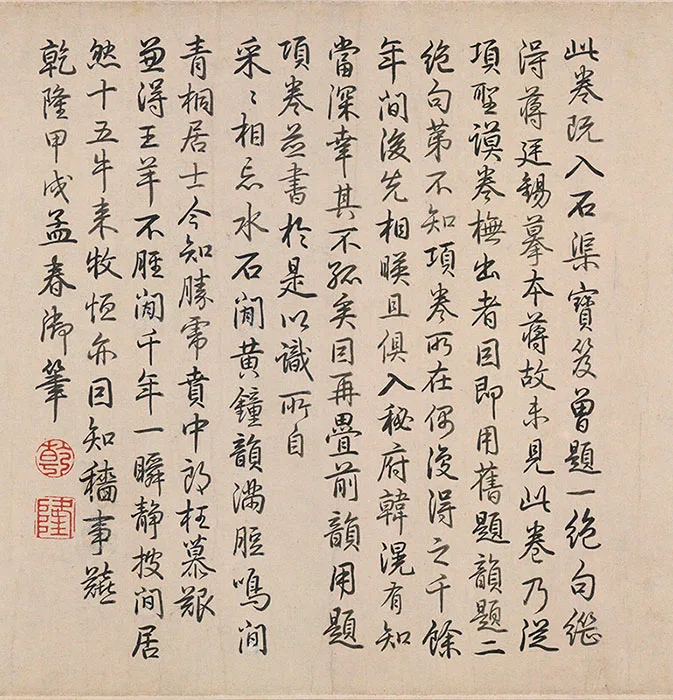 此卷既入石渠寶笈曾題一絶句繼
得蔣廷錫摹本蔣故未見此卷乃從
項聖謨卷橅出者因即用舊題韻題二
絶句第不知項卷所在偶復得之千餘
年間後先相暎且俱入秘府韓滉有知
當深幸其不孤矣因再疊前韻用題
項卷並書於是以識所自
采〻相忘水石間黃鐘韻滿脰鳴間
青桐居士今知勝需賁中郎枉慕艱
蕪得王羊不脛間千年一瞬靜披間居
然十五牛來牧恒亦因知穡事艱
乾隆甲戌孟春御筆
乾
隆